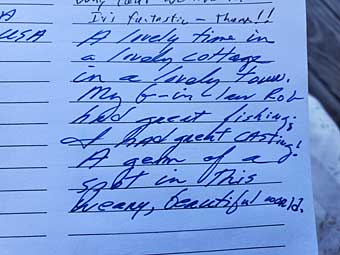 It's fantastic - thanks!!
USA
A lovely time in
a lovely cottage
in a lovely town.
My B-in-law Rob
had great fishing;
I had great casting!
A gem of a
spot in this
weary, beautiful world.